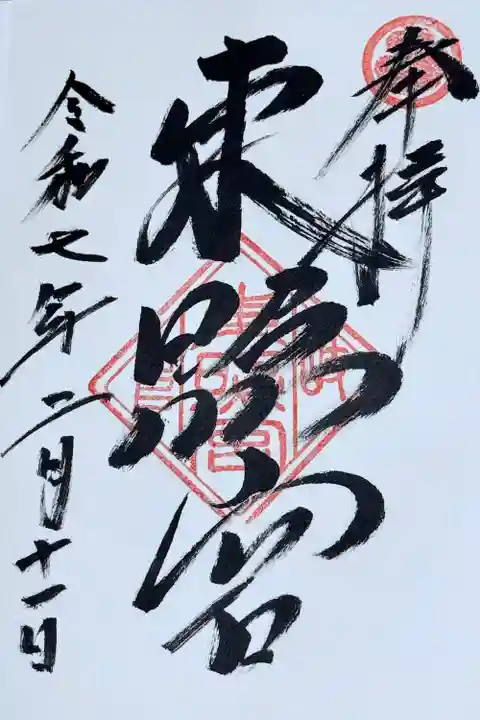 奉拝
東照宮
令和七年二月十一日